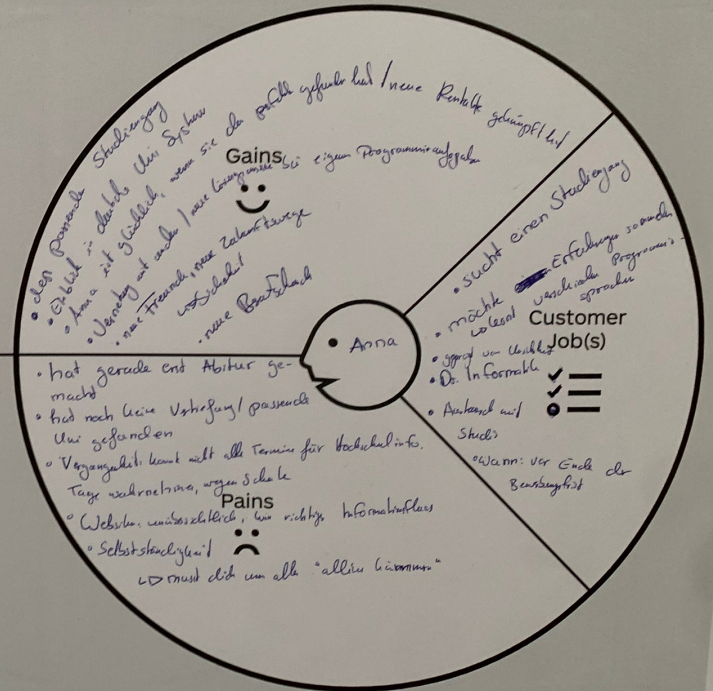 Gains
• den passenden Studiengang
• Einblick in das Uni System
• Anna ist glücklich, wenn sie das gefunden hat / neue Kontakte geknüpft hat
• Vernetzung mit / neue bei eigenen Programmieraufgaben
• neue Freunde, neue Zukunftswege
• neue
Anna
• sucht einen Studiengang
• möchte Erfahrungen sammeln
verschiedene Programmier-
sprachen
Customer
Job(s)
• Informatik
• Austausch mit
Studis
• Wann: vor Ende der
Bewerbungsfrist
• hat gerade erst Abitur ge-
macht
• hat noch keine Vertiefung / passende
Uni gefunden
• Vergangenheit: konnte nicht alle Termine für Hochschulinfo.
Tage wahrnehmen, wegen Schule
Pains
• Websiten unübersichtlich, kein richtiger Informationsfluss
• Selbstständigkeit
↳ musst dich um alles "allein kümmern"